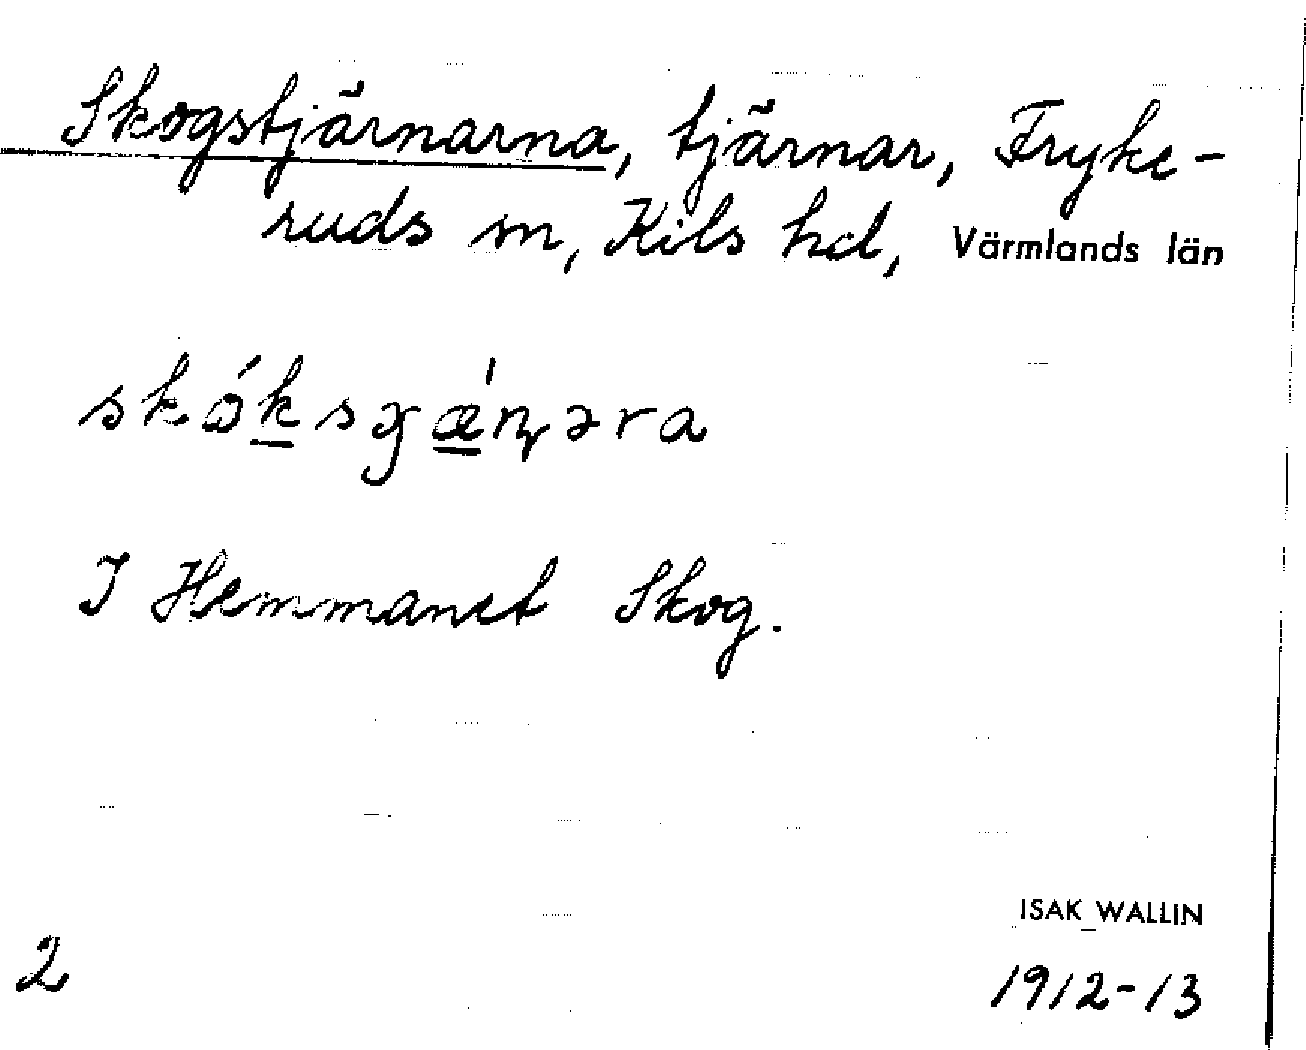 Skogstjärnarna, tjärnar, Fryke-
ruds sn, Kils hd, Värmlands län
skóksɟǽɳəra
I Hemmanet Skog.
ISAK WALLIN
2 1912-13